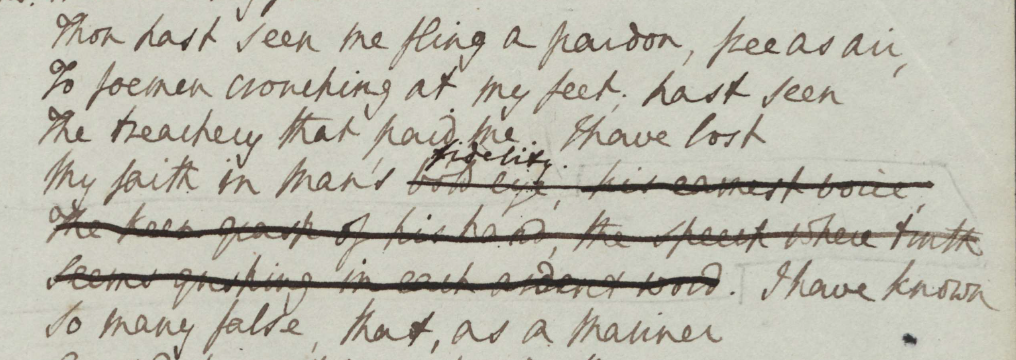 Thou hast seen me fling a pardon, free as air,
To foemen crouching at my feet; hast seen
The treachery that paid me. I have lost
fidelity.
My faith in man's bold eye, his earnest voice,
The keen grasp of his hand, the speech where truth
Seems gushing in each ardent word. I have known
So many false, that, as a mariner